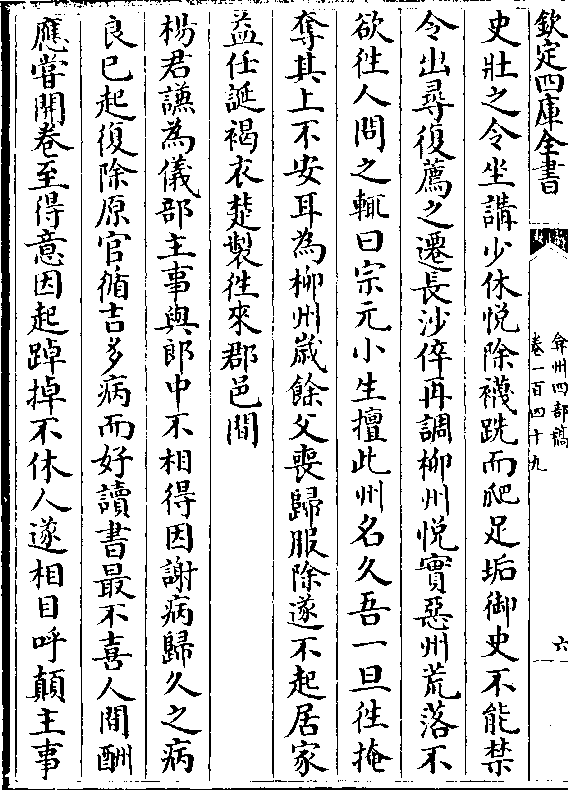 欽定四庫全書
弇州四部稿
卷一百四十九
六
史壯之令坐講少休悅除襪跣而爬足垢御史不能禁
令出尋復薦之遷長沙倅再調柳州悅實惡州荒落不
欲徃人問之輒曰宗元小生擅此州名久吾一旦徃掩
奪其上不安耳為柳州嵗餘父喪歸服除遂不起居家
益任誕褐衣楚製徃來郡邑間
楊君謙為儀部主事與郎中不相得因謝病歸久之病
良已起復除原官循吉多病而好讀書最不喜人間酬
應嘗開卷至得意因起踔掉不休人遂相目呼顛主事